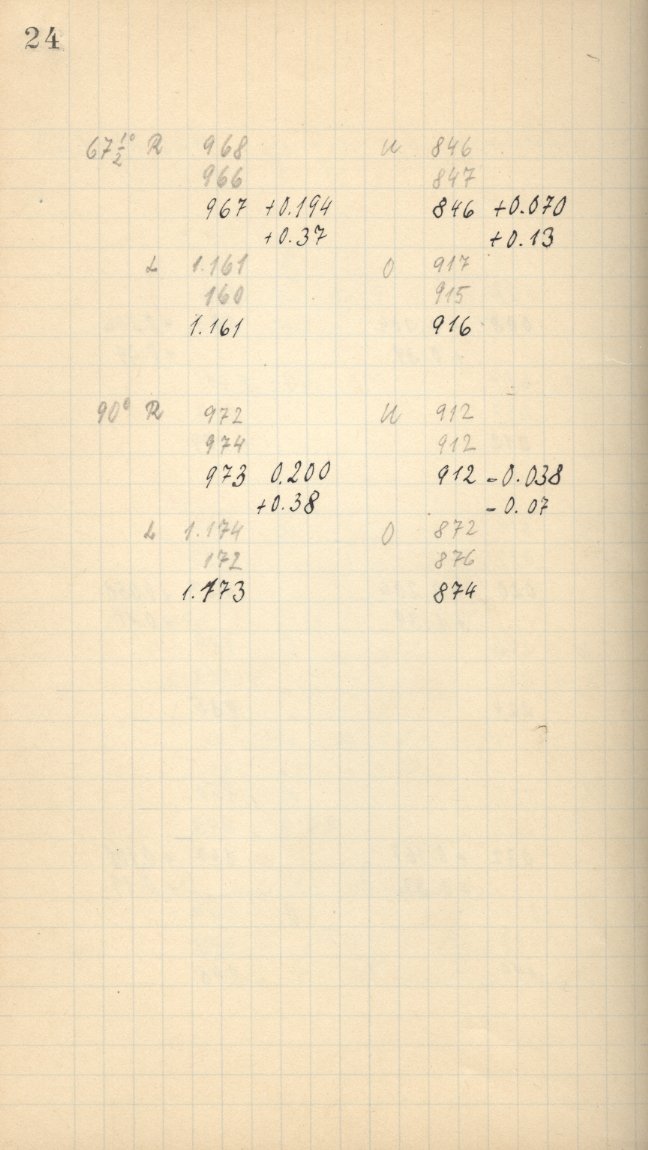 24
67 1/2° R 968 U 846
966 847
967 +0.194 846 +0.070
+0.37 +0.13
L 1.161 O 917
160 915
1.161 916
90° R 972 U 912
974 912
973 0.200 912 -0.038
+0.38 -0.07
L 1.174 O 872
172 876
1.173 874